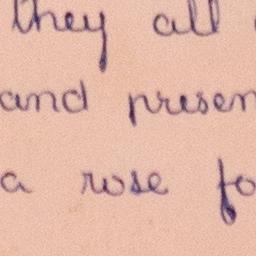 they all
and presen
a rose fo